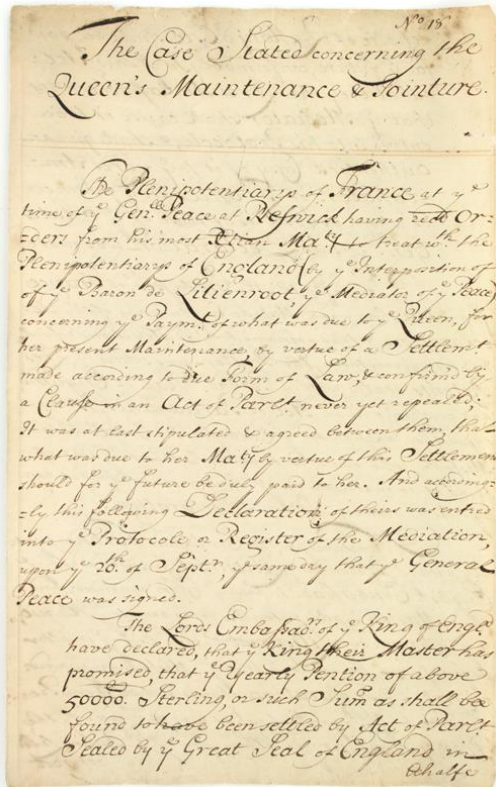 No 18
The Case Stated concerning the
Queen's Maintenance & Jointure.
The Plenipotentiarys of France at ye
time of ye Genll Peace at Reswick having recd Or-
=ders from his most Xtian Maty to treat wth the
Plenipotentiarys of England (by ye Interposition of
of ye Baron de Lilienroot, ye Mediator of ye Peace)
concerning ye Paymt of what was due to ye Queen, for
her present Maintenance, by vertue of a Settlemt
made according to due Form of Law, & confirmed by
a Clause in an Act of Parlt never yet repealed;
It was at last stipulated & agreed between them, that
what was due to her Maty by vertue of this Settlement
should for ye future be duly paid to her. And according-
=ly this following Declaration of theirs was entred
into ye Protocole or Register of the Mediation,
upon ye 20th of Septr, ye same day that ye General
Peace was signed.
The Lords Embassadrs of ye King of Engld
have declared, that ye King their Master has
promised, that ye yearly Pention of above
50000. Sterling, or such Sum as shall be
found to have been settled by Act of Parlt
Sealed by ye Great Seal of England in
behalfe